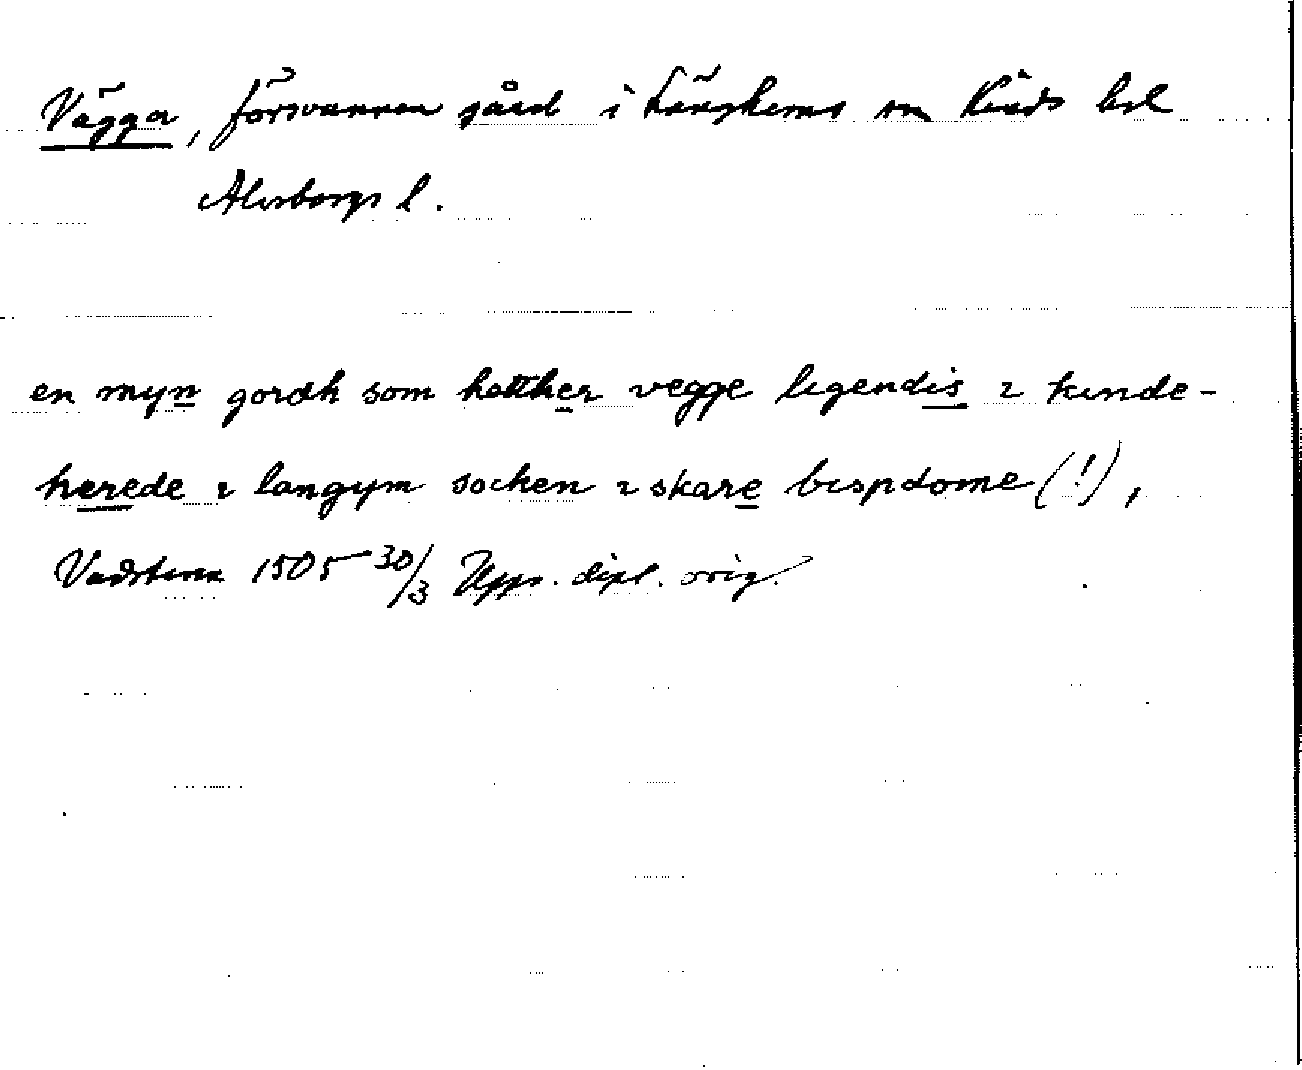 Vägga, försvunnen gård i Länghems sn Kinds hd
Älvsborgs l.
en myn gordh som hetther vegge ligendis i kinde-
herede i langym socken i skare bispdome (!),
Vadstena 1505 30/3 Upps. dipl. orig.